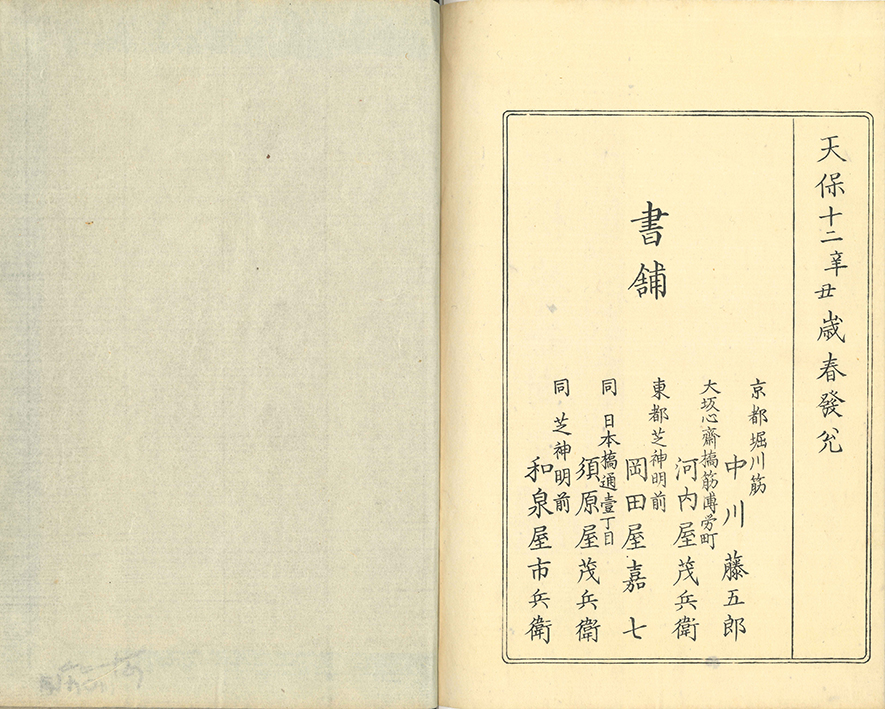 天保十二辛丑歳春發兌
書舗
京都堀川筋
中川藤五郎
大坂心齋橋筋博労町
河内屋茂兵衛
東都芝神明前
岡田屋嘉七
同日本橋通壹丁目
須原屋茂兵衛
同芝神明前
和泉屋市兵衛